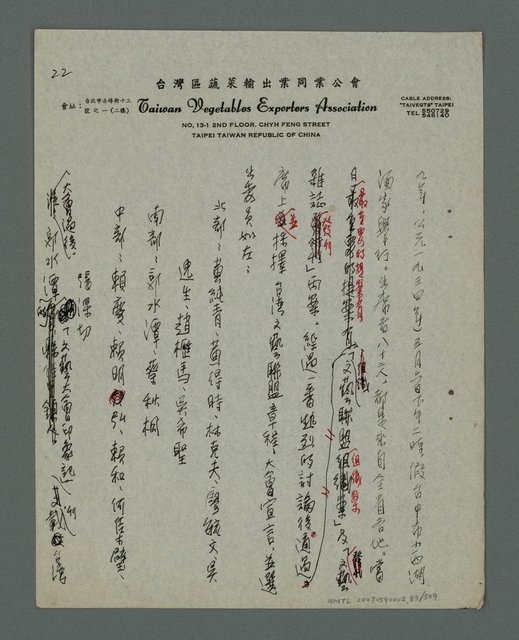 22
台灣區蔬菜輸出業同業公會
會址：台北市赤峰街十三號之一（二樓）
Taiwan Vegetables Exporters Association
CABLE ADDRESS: "TAIVEGTS" TAIPEI
TEL
NO. 13-1 2ND FLOOR. CHYH FENG STREET
TAIPEI TAIWAN REPUBLIC OF CHINA
九年，公元一九三四年五月六日下午二時假台中市小西湖
酒家舉行。出席者八十六，都是來自全省各地。當
日最重要的提案有「文藝聯盟組織案」及「文藝
雜誌發刊」兩案，經過一番熱烈的討論後通過。
席上並採擇台灣文藝聯盟章程、大會宣言，並選
出委員如左：
北部：黃純青、黃得時、林克夫、廖毓文、吳
逸生、趙櫪馬、吳希聖
南部：郭水潭、蔡秋桐
中部：賴慶、賴明弘、賴和、何集璧、
張深切
大會過後
郭水潭「文藝大會印象記」台灣
NMTL 20070590002 83/509